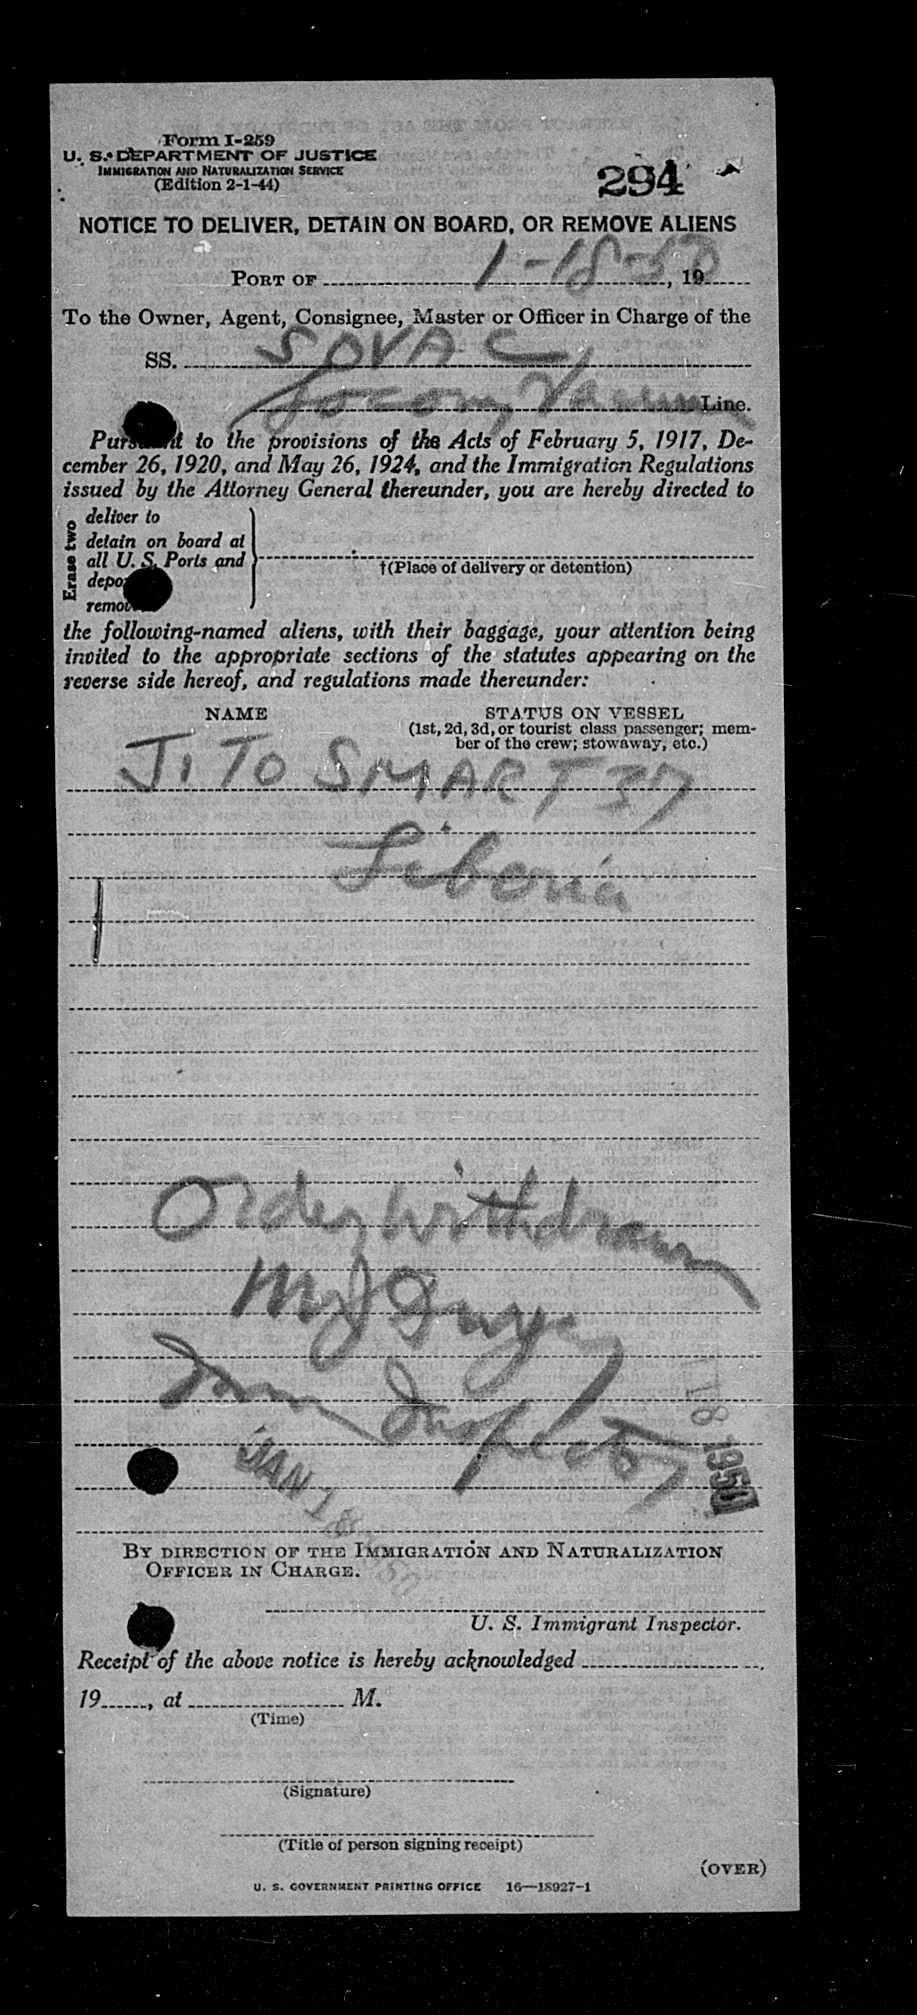 Form I-259
U. S. DEPARTMENT OF JUSTICE
IMMIGRATION AND NATURALIZATION SERVICE
(Edition 2-1-44)
294
NOTICE TO DELIVER, DETAIN ON BOARD, OR REMOVE ALIENS
PORT OF 1-18-50, 19
To the Owner, Agent, Consignee, Master or Officer in Charge of the
SS. SOVAC
Socony Vacuum Line.
Pursuant to the provisions of the Acts of February 5, 1917, De-
cember 26, 1920, and May 26, 1924, and the Immigration Regulations
issued by the Attorney General thereunder, you are hereby directed to
Erase two
deliver to
detain on board at
all U. S. Ports and
deport
remove
†(Place of delivery or detention)
the following-named aliens, with their baggage, your attention being
invited to the appropriate sections of the statutes appearing on the
reverse side hereof, and regulations made thereunder:
NAME STATUS ON VESSEL
(1st, 2d, 3d, or tourist class passenger; mem-
ber of the crew; stowaway, etc.)
J. TO SMART 37
Liberia
Order withdrawn
Imm Inspector
JAN 18 1950
18 1950
BY DIRECTION OF THE IMMIGRATION AND NATURALIZATION
OFFICER IN CHARGE.
U. S. Immigrant Inspector.
Receipt of the above notice is hereby acknowledged
19, at M.
(Time)
(Signature)
(Title of person signing receipt)
(OVER)
U. S. GOVERNMENT PRINTING OFFICE 16—18927-1